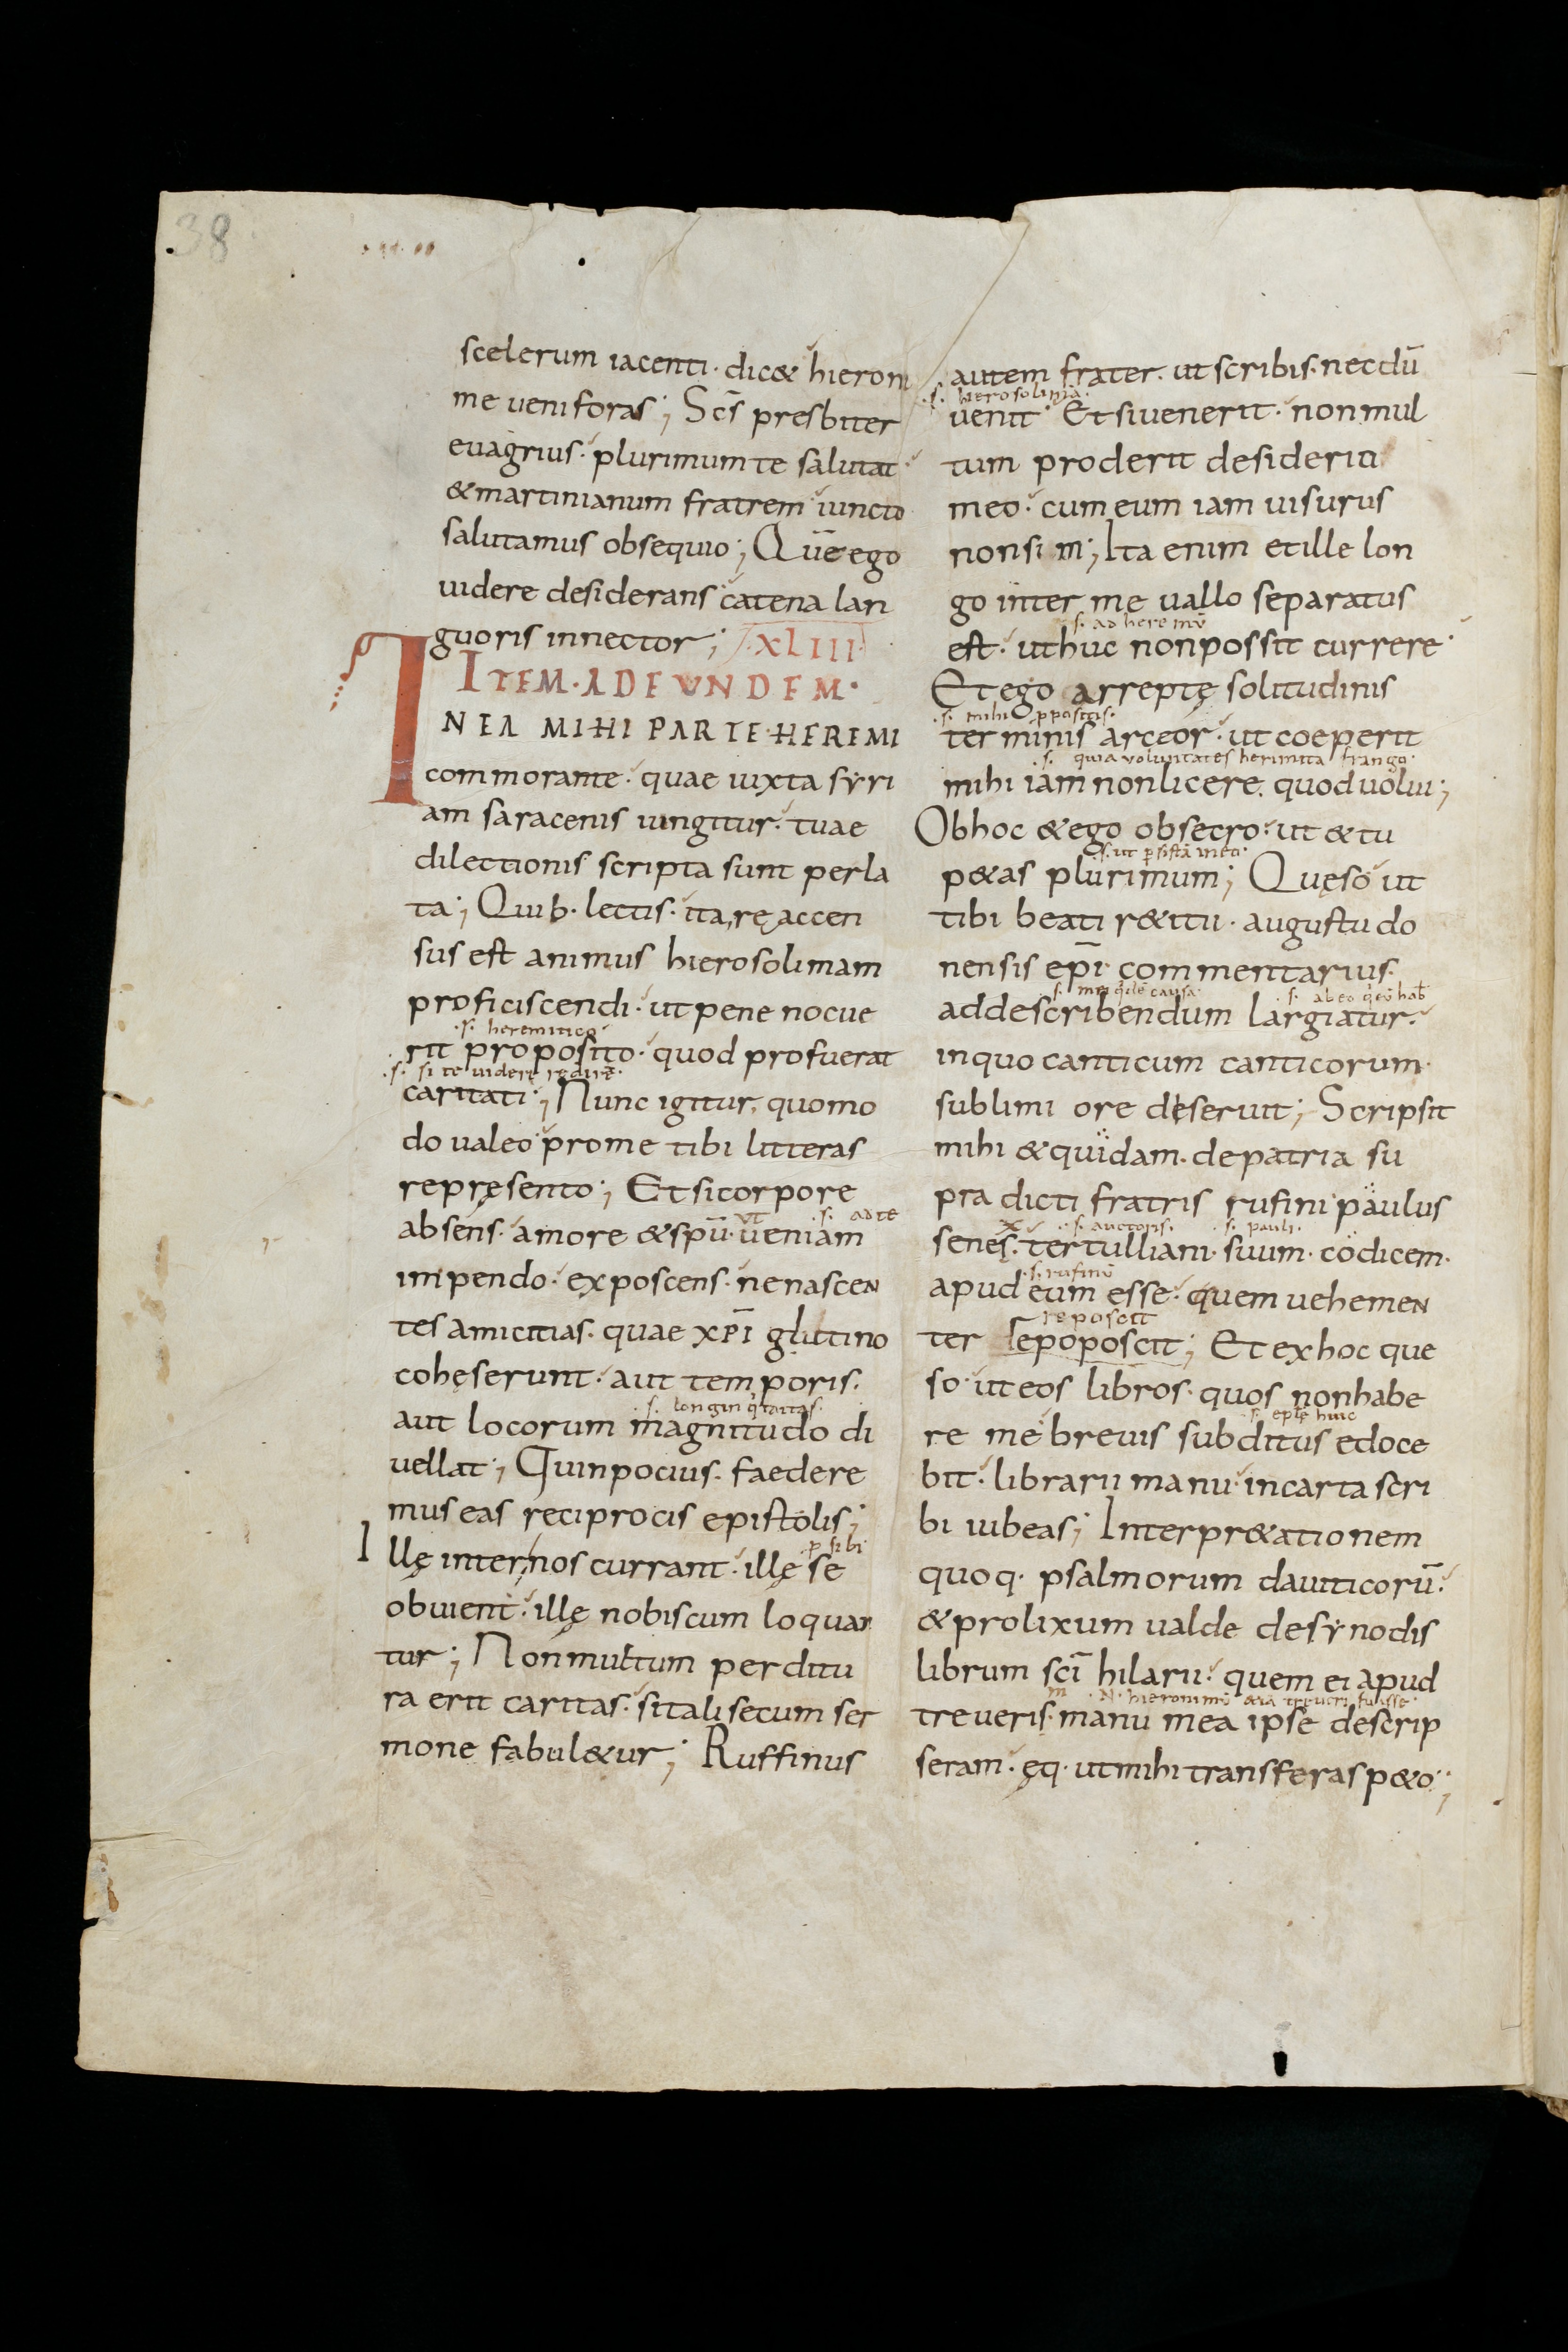 38
scelerum iacenti· dic& hieroni
me ueni foras; Scs̄ presbiter
euagrius· plurimum te salutat
& martinianum fratrem iuncto
salutamus obsequio; Quē ego
uidere desiderans catena lan
guoris innector; ·XLIII·
ITEM·AD EUNDEM·
IN EA MIHI PARTE HEREMI
commorante· quae iuxta syri
am saracenis iungitur· tuae
dilectionis scripta sunt perla
ta; Quib· lectis· ita, rę accen
sus est animus hierosolimam
proficiscendi· ut pene nocue
·s· heremitico
rit proposito· quod profuerat
·s· si te uiderę redirē·
caritati; Nunc igitur, quomo
do ualeo prome tibi litteras
repręsento; Et si corpore
ut ·s· ad te
absens· amore & spū· ueniam
impendo· exposcens· ne nascen
tes amicitias· quae xp̄i glutino
cohęserunt· aut temporis·
·s· longinq̇itatas·
aut locorum magnitudo di
uellat; Quin pocius· faedere
mus eas reciprocis epistolis;
p̄ sibi
Illę inter nos currant· illę se
obuient· illę nobiscum loquan
tur; Non multum perditu
ra erit caritas· si tali secum ser
mone fabul&ur; Ruffinus
autem frater· ut scribis· necdū
·s· hierosolimā·
uenit· Et si uenerit· non mul
tum proderit desiderio
meo· cum eum iam uisurus
non sim; Ita enim et ille lon
go inter me uallo separatus
·s· ad heremū
est· ut huc non possit currere·
Et ego arreptę solitudinis
·s· mihi p̄positis·
terminis arceor· ut coeperit
·s· quia voluntates herimita frango·
mihi iam non licere, quod uolui;
Ob hoc & ego obsecro· ut & tu
·s· ut p̄sistā in eo·
p&as plurimum; Quęso ut
tibi beati r&itii· augustudo
nensis ep̄i· commentarius·
·s· causa· ·s· ab eo q̇ eū hab̄
ad describendum largiatur·
in quo canticum canticorum·
sublimi ore deseruit; Scripsit
mihi & quidam· de patria su
pra dicti fratris rufini paulus
·s· auctoris· ·s· pauli·
senex· tertulliani· suum· codicem·
·s· rufinū
apud eum esse· quem uehemen
reposcit
ter repoposcit; Et ex hoc que
so· ut eos libros· quos non habe
·s· ep̄lę huic
re me breuis subditus edoce
bit· librarii manu· in carta scri
bi iubeas; Interpr&ationem
quoq· psalmorum dauiticorū·
& prolixum ualde de synodis
librum sc̄i hilarii· quem ei apud
·N· hieronimū treueri fuisse·
treueris· manu mea ipse descrip
seram· ęq· ut mihi transferas p&o;